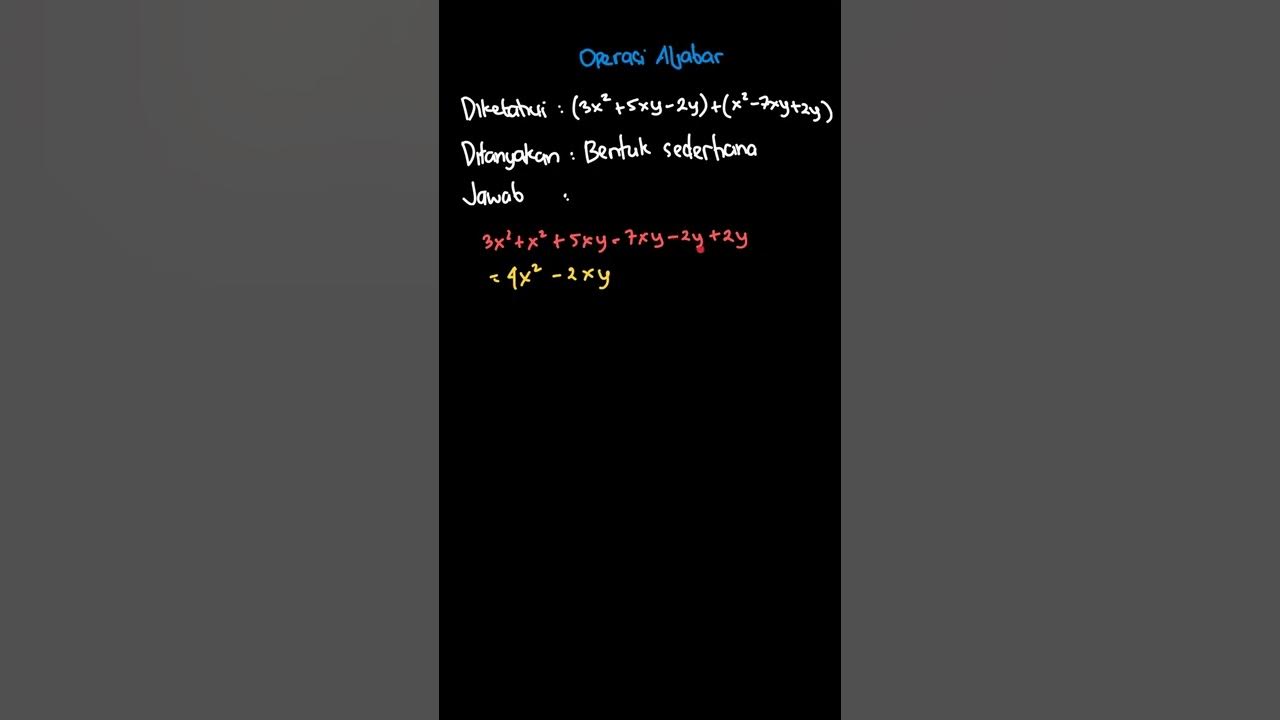 Operasi Aljabar
Diketahui : (3x² + 5xy - 2y) + (x² - 7xy + 2y)
Ditanyakan : Bentuk sederhana
Jawab :
3x² + x² + 5xy - 7xy - 2y + 2y
= 4x² - 2xy